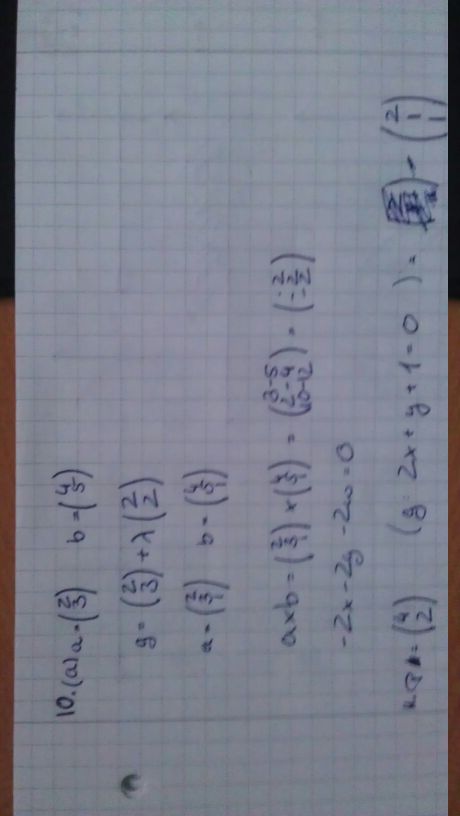 10. (a) a = (2 3) b = (4 5)
g = (2 3) + λ (2 2)
a = (2 3 1) b = (4 5 1)
a×b = (2 3 1) × (4 5 1) = (3-5 2-4 10-12) = (-2 -2 -2)
-2x - 2y - 2w = 0
= (4 2) (g: 2x + y + 1 = 0) = (2 1 1)